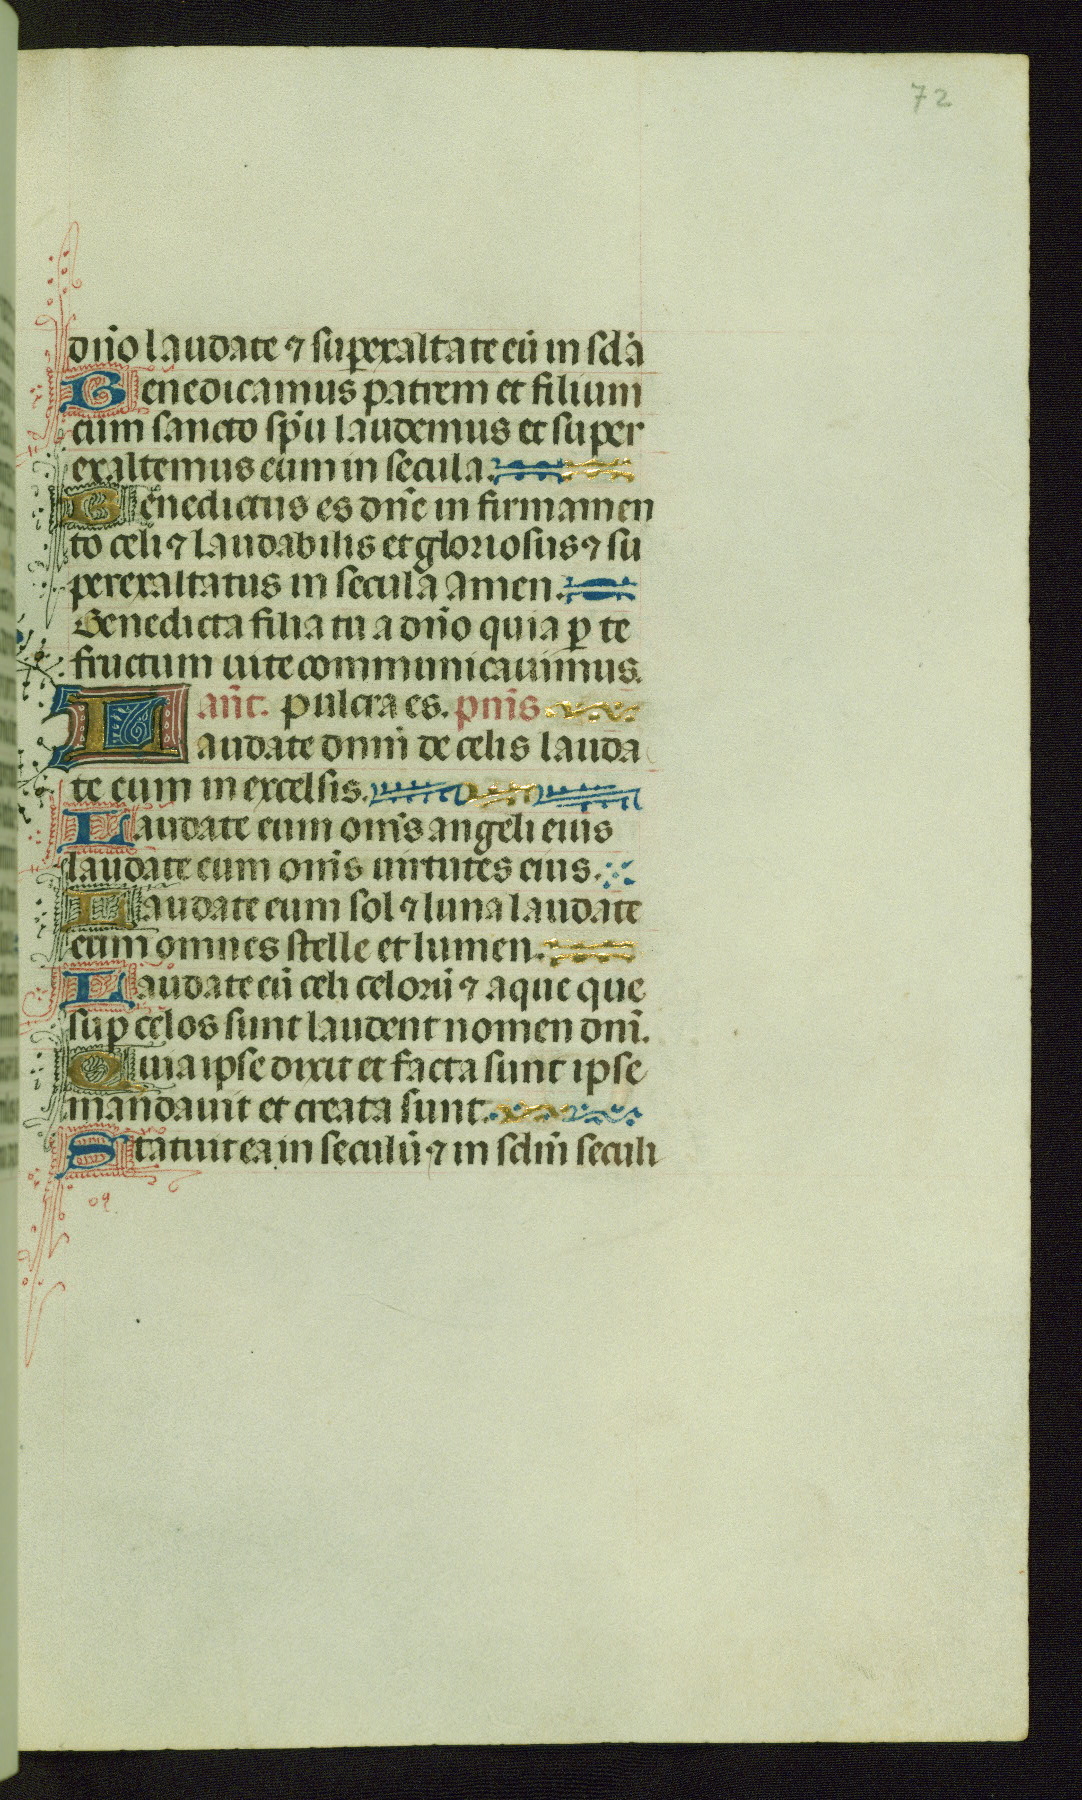 72
dn̄o laudate ⁊ superexaltate eū in scl̄a
Benedicamus patrem et filium
cum sancto sp̄u laudemus et super
exaltemus eum in secula.
Benedictus es dn̄e in firmamen
to celi ⁊ laudabilis et gloriosus ⁊ su
perexaltatus in secula amen.
Benedicta filia tu a dn̄o quia ꝑ te
fructum uite communicauimus.
an̄t. pulcra es. pn̄is
Laudate dnm̄ de celis lauda
te eum in excelsis.
Laudate eum om̄s angeli eius
laudate eum om̄s uirtutes eius.
Laudate eum sol ⁊ luna laudate
eum omnes stelle et lumen.
Laudate eū celi celorū ⁊ aque que
suꝑ celos sunt laudent nomen dnī.
Quia ipse dixit et facta sunt ipse
mandauit et creata sunt.
Statuit ea in seculū ⁊ in sclm̄ seculi